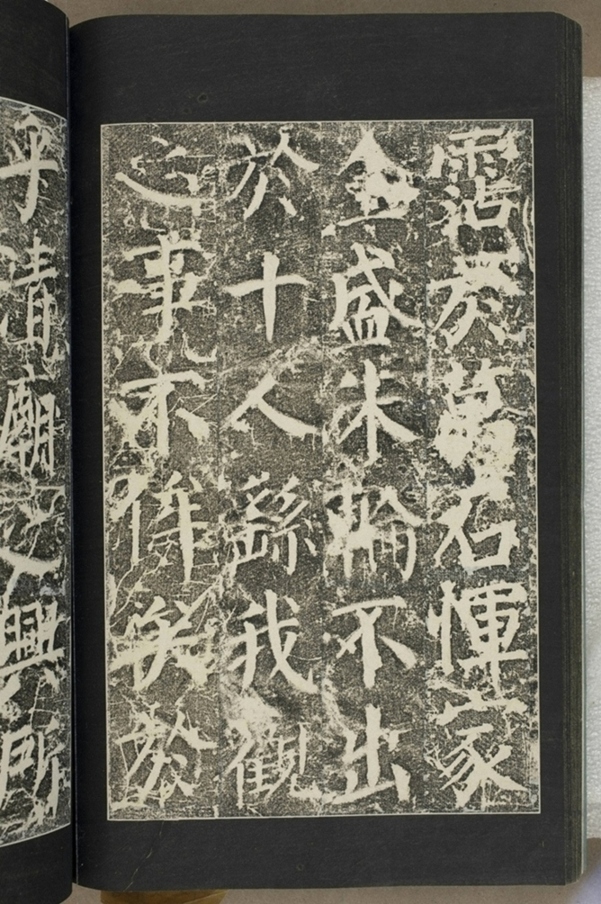 霑於萬石惲家
全盛朱輪不出
於十人繇我觀
之事不侔矣於
乎清廟之興所